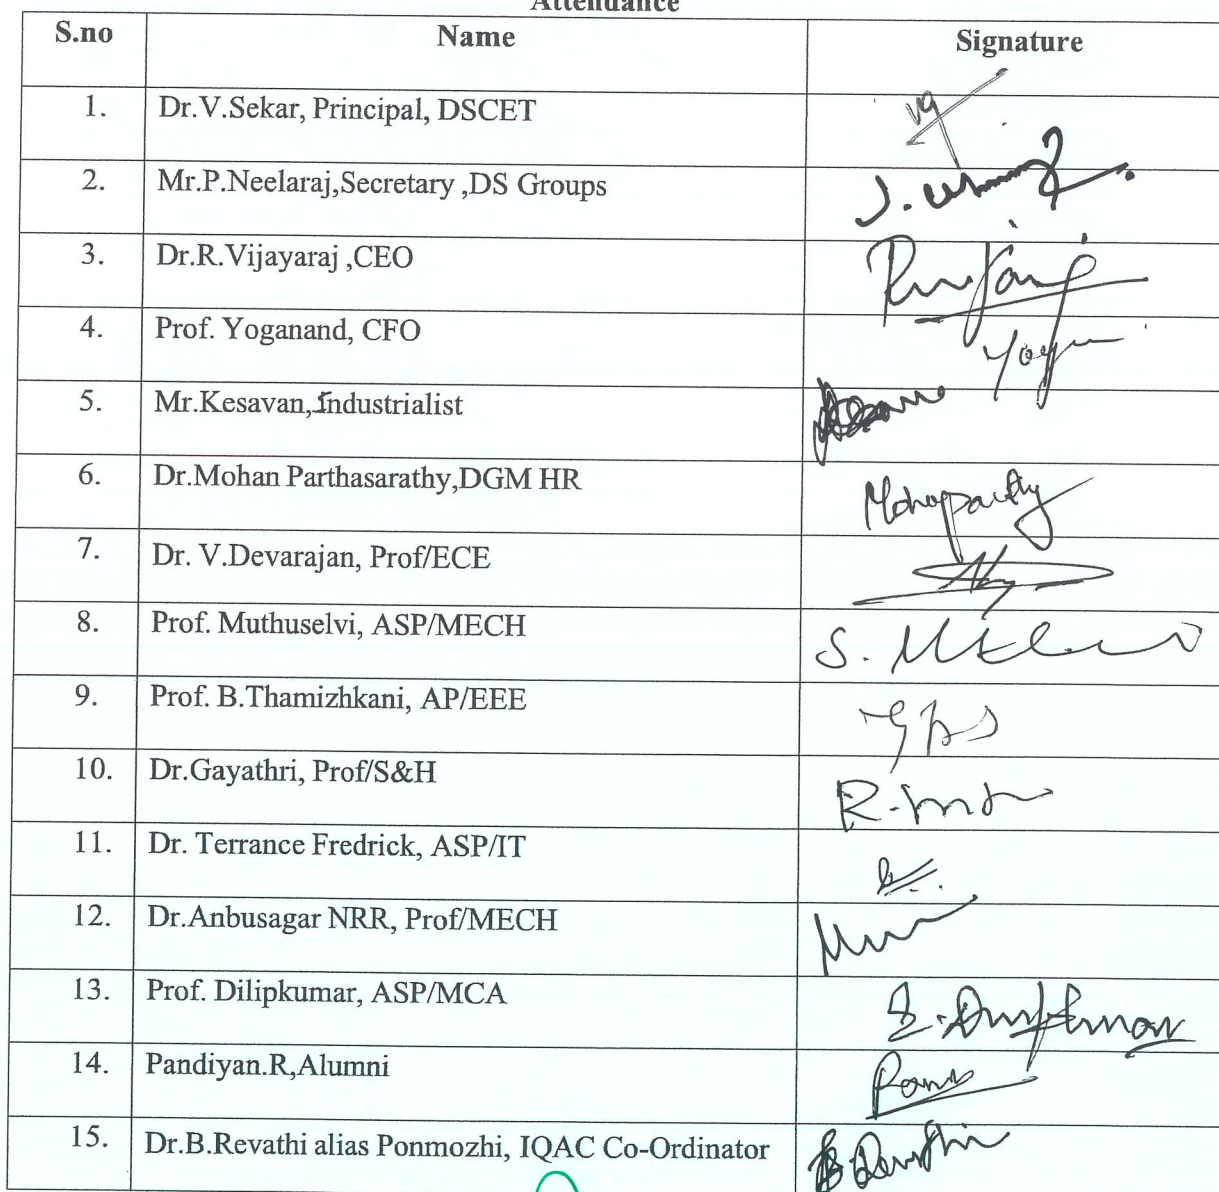 Attendance
S.no Name Signature
1. Dr.V.Sekar, Principal, DSCET
2. Mr.P.Neelaraj,Secretary ,DS Groups
3. Dr.R.Vijayaraj ,CEO
4. Prof. Yoganand, CFO
5. Mr.Kesavan,Industrialist
6. Dr.Mohan Parthasarathy,DGM HR
7. Dr. V.Devarajan, Prof/ECE
8. Prof. Muthuselvi, ASP/MECH
9. Prof. B.Thamizhkani, AP/EEE
10. Dr.Gayathri, Prof/S&H
11. Dr. Terrance Fredrick, ASP/IT
12. Dr.Anbusagar NRR, Prof/MECH
13. Prof. Dilipkumar, ASP/MCA
14. Pandiyan.R,Alumni
15. Dr.B.Revathi alias Ponmozhi, IQAC Co-Ordinator